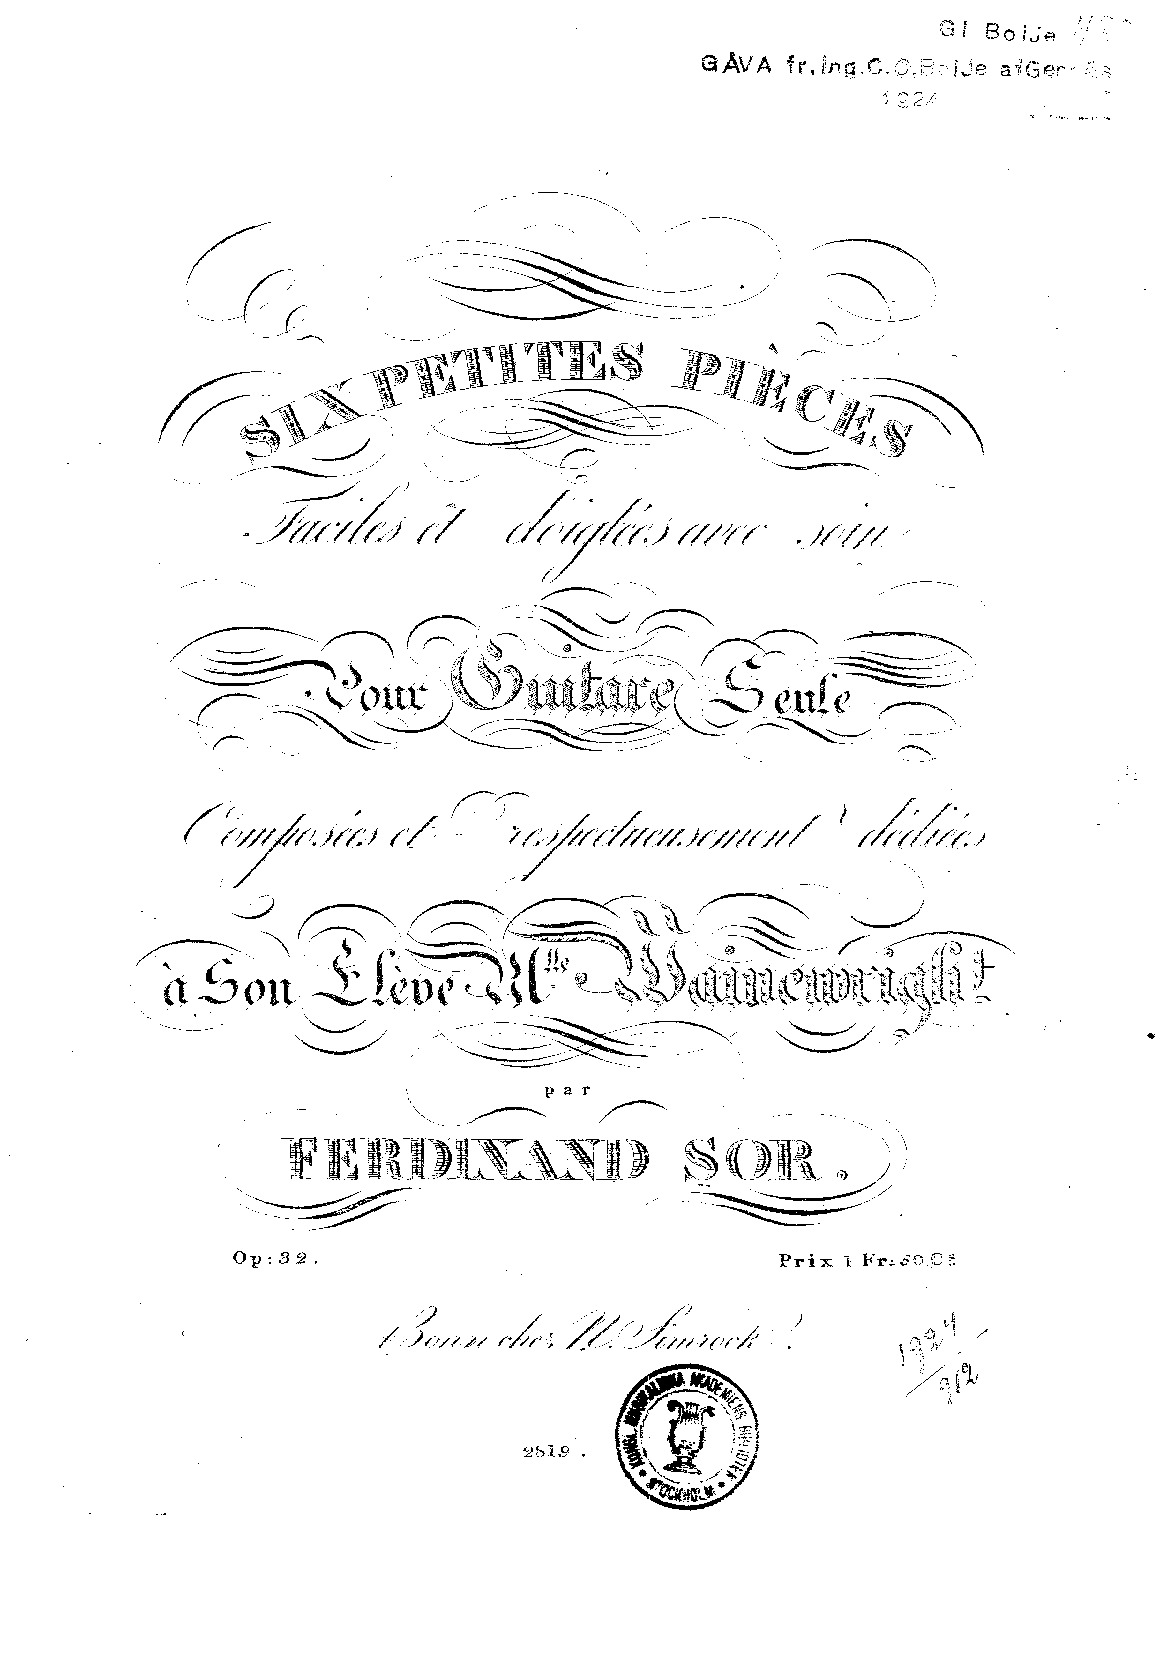 Gl Boije
GÅVA fr. ing. C. O. Boije af Gennäs
1924
SIX PETITES PIÈCES
Faciles et doigtées avec soin
Pour Guitare Seule
Composées et respectueusement dédiées
à Son Elève Mlle Wainewright
par
FERDINAND SOR.
Op: 32. Prix 1 Fr: 50 Cs
Bonn chez N. Simrock.
1924/912
2819.
KUNGL. MUSIKALISKA AKADEMIENS BIBLIOTEK
STOCKHOLM